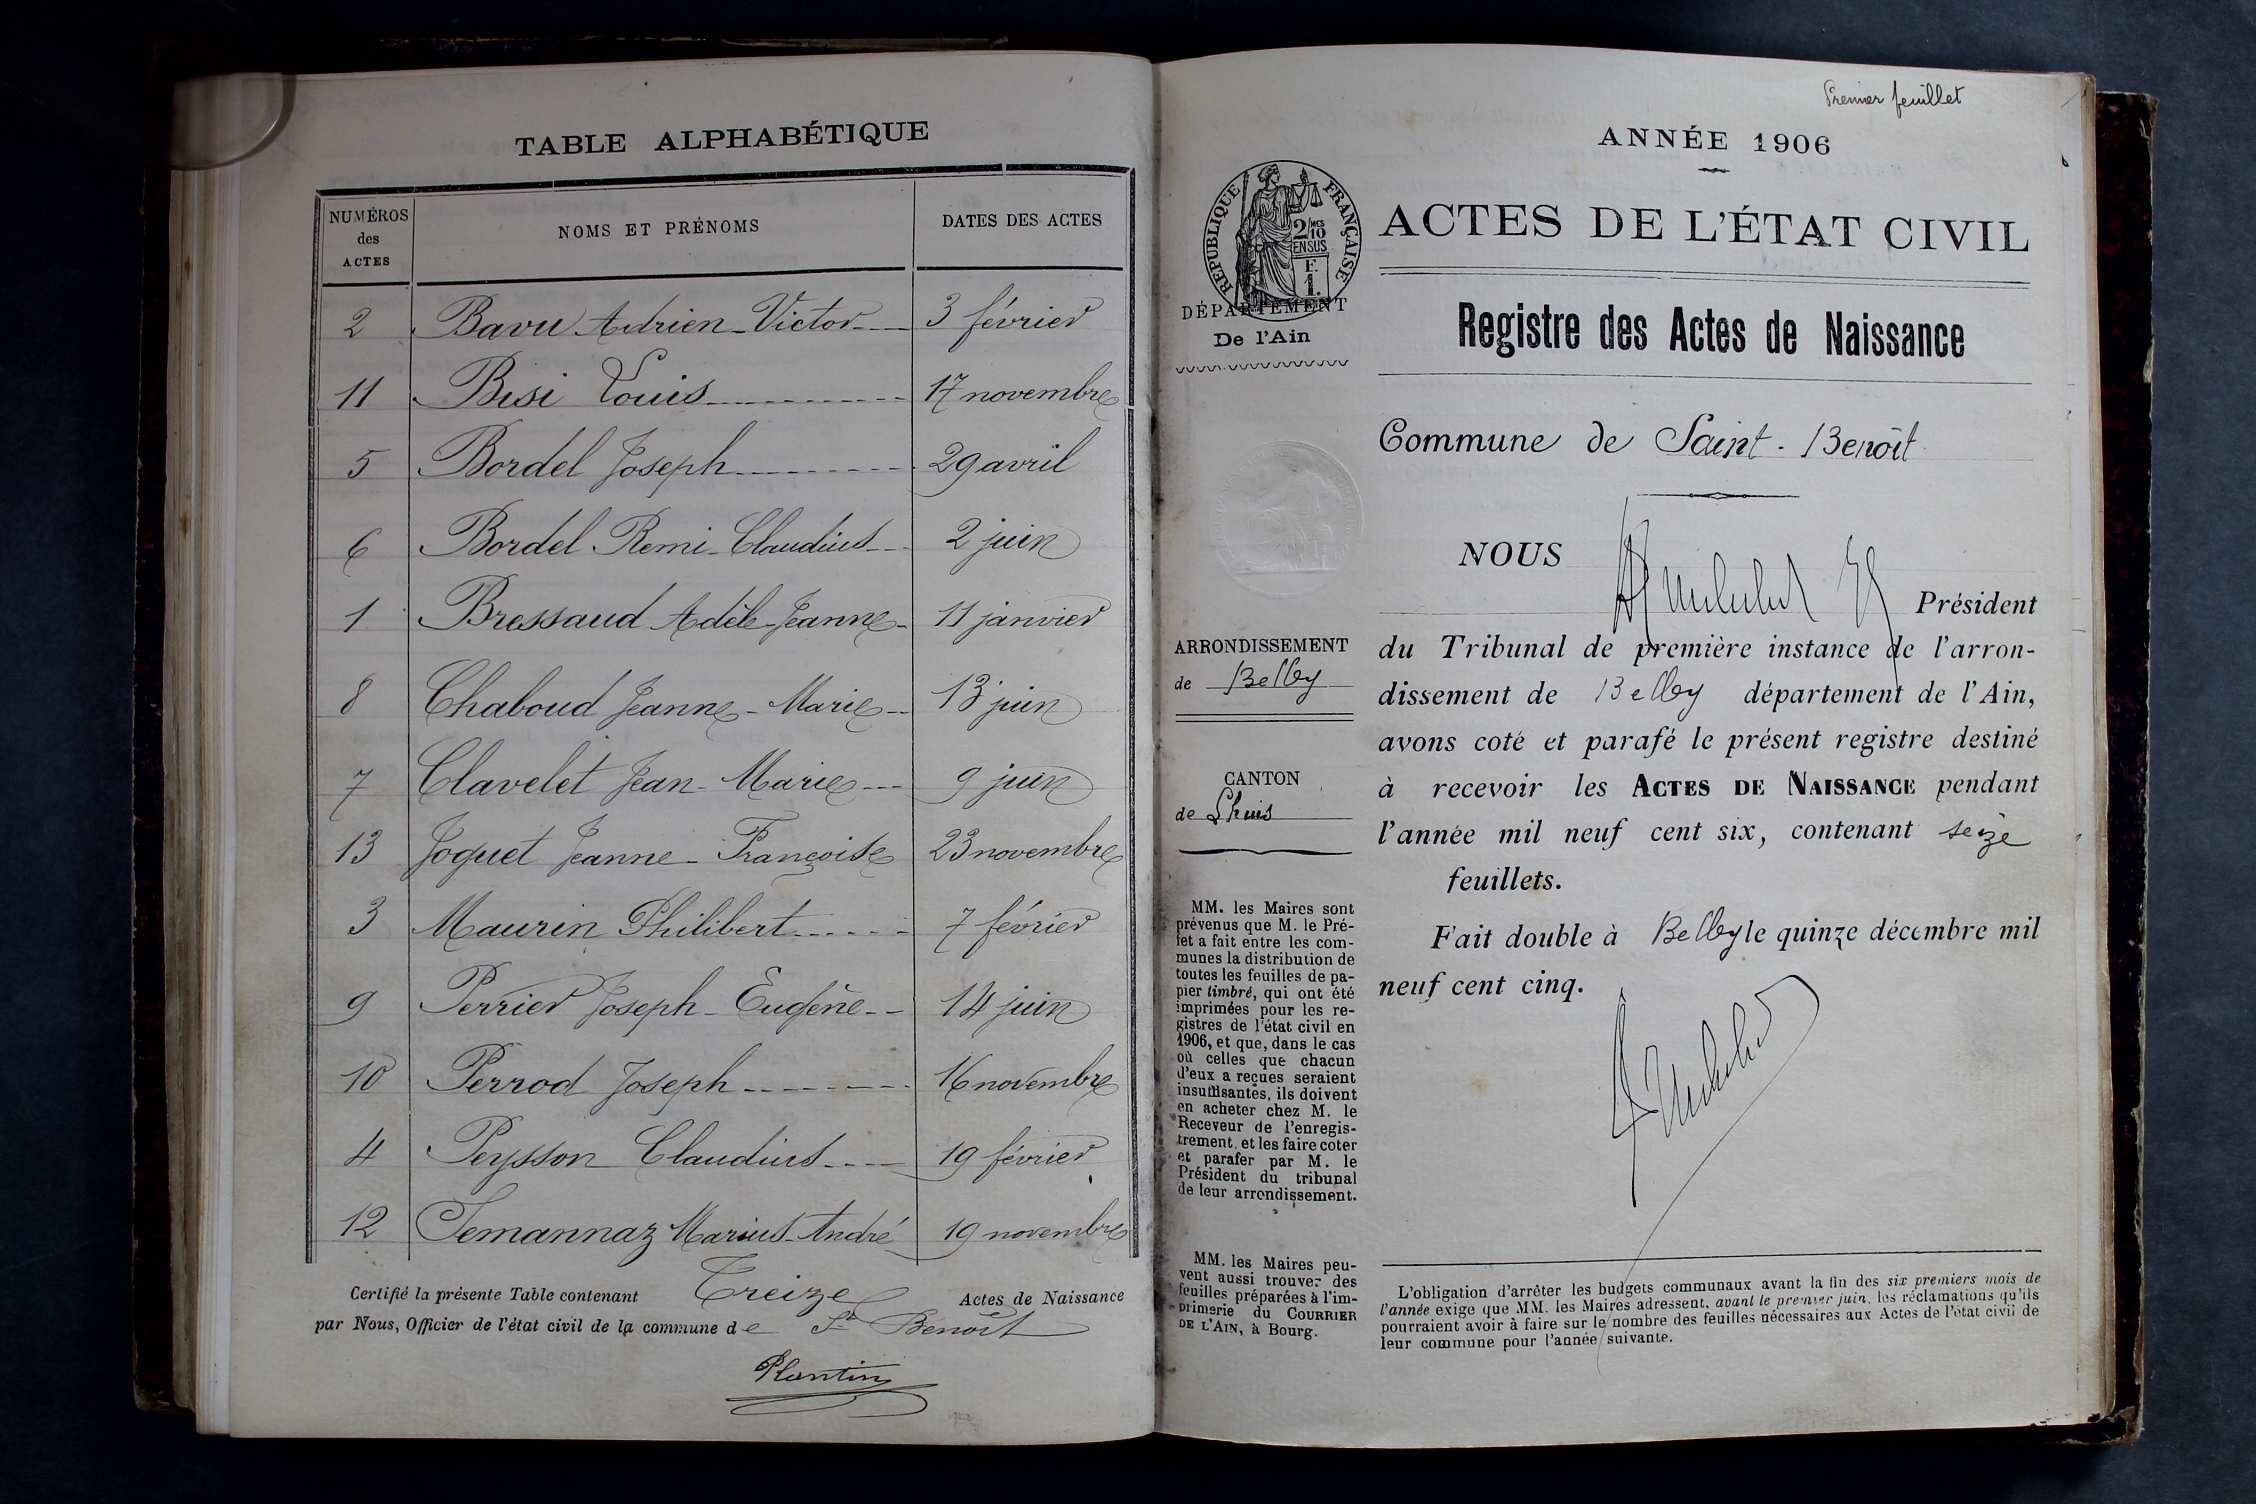 TABLE ALPHABÉTIQUE
NUMÉROS des ACTES NOMS ET PRÉNOMS DATES DES ACTES
2 Bavu Adrien-Victor 3 février
11 Bisi Louis 17 novembre
5 Bordel Joseph 29 avril
6 Bordel Remi-Claudius 2 juin
1 Bressaud Adèle-Jeanne 11 janvier
8 Chaboud Jeanne-Marie 13 juin
7 Clavelet Jean-Marie 9 juin
13 Joguet Jeanne-Françoise 23 novembre
3 Maurin Philibert 7 février
9 Perrier Joseph-Eugène 14 juin
10 Perrod Joseph 16 novembre
4 Peysson Claudius 19 février
12 Temannaz Marius-André 19 novembre
Certifié la présente Table contenant Treize Actes de Naissance
par Nous, Officier de l'état civil de la commune de St Benoît
Plantin
Premier feuillet
ANNÉE 1906
ACTES DE L'ÉTAT CIVIL
RÉPUBLIQUE FRANÇAISE
2/10 MES
EN SUS
F.
1.
DÉPARTEMENT
De l'Ain
Registre des Actes de Naissance
Commune de Saint-Benoît
NOUS
Président
du Tribunal de première instance de l'arron-
dissement de Belley département de l'Ain,
avons coté et parafé le présent registre destiné
à recevoir les ACTES DE NAISSANCE pendant
l'année mil neuf cent six, contenant seize
feuillets.
Fait double à Belley le quinze décembre mil
neuf cent cinq.
ARRONDISSEMENT
de Belley
CANTON
de Lhuis
MM. les Maires sont
prévenus que M. le Pré-
fet a fait entre les com-
munes la distribution de
toutes les feuilles de pa-
pier timbré, qui ont été
imprimées pour les re-
gistres de l'état civil en
1906, et que, dans le cas
où celles que chacun
d'eux a reçues seraient
insuffisantes, ils doivent
en acheter chez M. le
Receveur de l'enregis-
trement, et les faire coter
et parafer par M. le
Président du tribunal
de leur arrondissement.
MM. les Maires peu-
vent aussi trouver des
feuilles préparées à l'im-
primerie du COURRIER
DE L'AIN, à Bourg.
L'obligation d'arrêter les budgets communaux avant la fin des six premiers mois de
l'année exige que MM. les Maires adressent, avant le premier juin, les réclamations qu'ils
pourraient avoir à faire sur le nombre des feuilles nécessaires aux Actes de l'état civil de
leur commune pour l'année suivante.